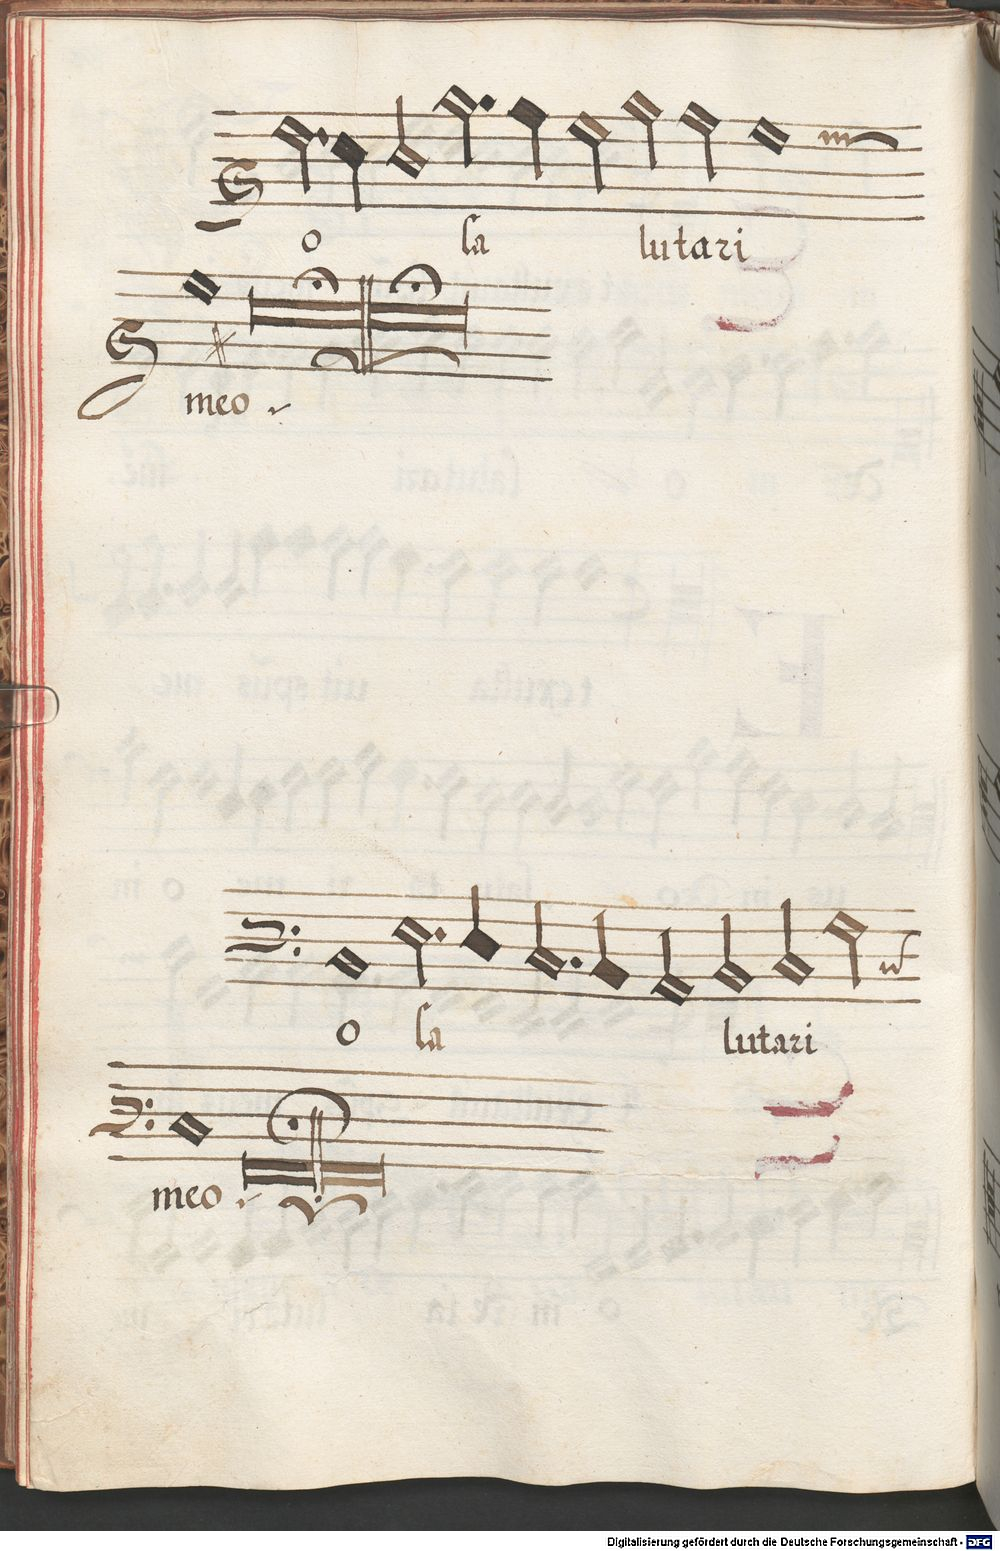 o sa lutari
meo
o sa lutari
meo
Digitalisierung gefördert durch die Deutsche Forschungsgemeinschaft - DFG